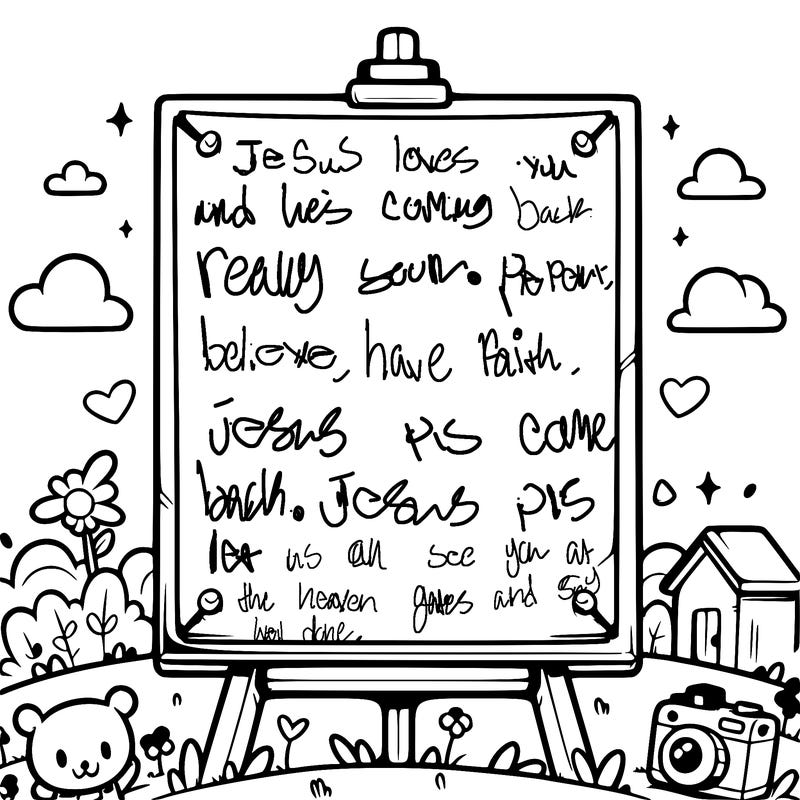 Jesus loves you
and he's coming back
really soon. Repent,
believe, have faith.
jesus pls come
back. Jesus pls
let us all see you at
the heaven gates and say
well done.